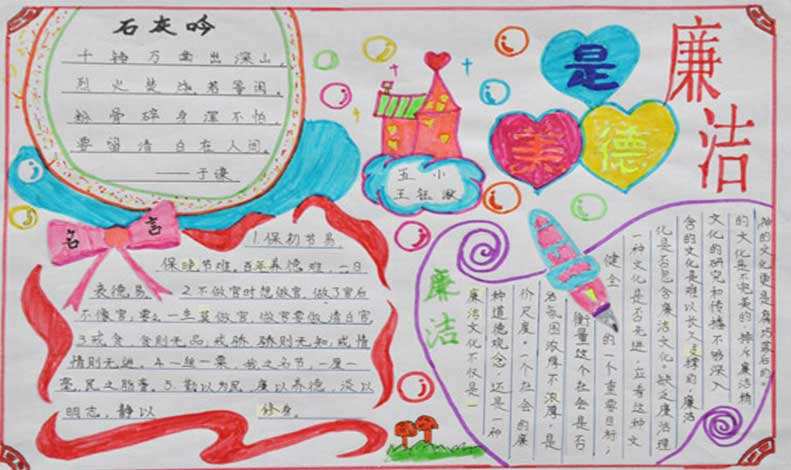 石灰吟
千锤万凿出深山，
烈火焚烧若等闲。
粉骨碎身浑不怕，
要留清白在人间。
——于谦
廉洁
是
美德
五小
王钰
名言
1.保初节易，
保晚节难。百年养德难，一日
丧德易。2.不做官时想做官，做了官后
不像官；要一生莫做官，做官要做清白官
3.戒贪，贪则无品，戒骄，骄则无知，戒情
情则无进。4.一丝一粟，我之名节，一厘一
毫，民之脂膏。5.勤以为民，廉以养德，淡以
明志，静以 修身。
廉洁
廉洁文化不仅是一
种道德观念，还是一种
价尺度。一个社会的廉
洁氛围浓厚不浓厚，是
衡量这个社会是否
健全 的一个重要目标；
一种文化是否先进，应看这种文
化是否包含廉洁文化。缺乏廉洁理
含的文化是难以长久支撑的；廉洁
文化的研究和传播不够深入
的文化是不完美的，排斥廉洁精
神的文化更是腐朽落后的。